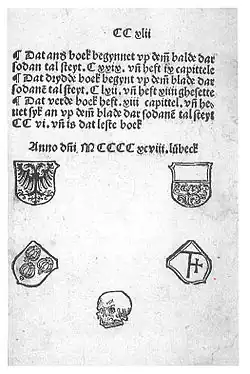 CC xlii
¶ Dat ander boek begynnet vp dem̄ blade dar
sodan tal steyt. C xxix. vn̄ heft ix capittele
¶ Dat drydde boek begynt vp dem̄ blade dar
sodanē tal steyt. C lvii. vn̄ heft xiiii ghesette
¶ Dat verde boek heft. xiii capittel. vn̄ he-
uet syk an vp dem̄ blade dar sodanē tal steyt
CC vi. vn̄ is dat leste boek
Anno dn̄i M CCCC xcviii. lübeck